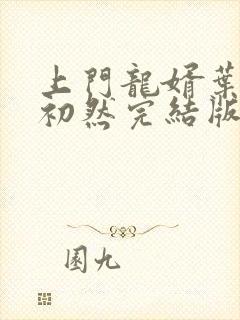 上門龍婿葉
初然完結版
園九